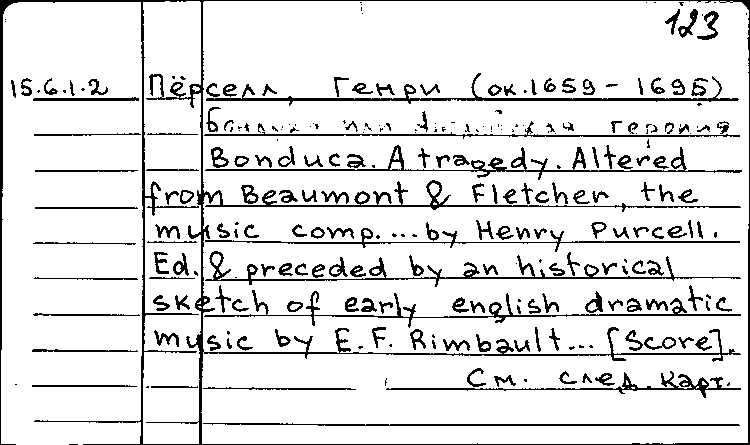 123
15.6.1.2 Пёрселл, Генри (ок.1659 - 1695)
или героиня
Bonduca. A tragedy. Altered
from Beaumont & Fletcher, the
music comp. ... by Henry Purcell.
Ed. & preceded by an historical
sketch of early english dramatic
music by E. F. Rimbault... [Score].
См. след. карт.